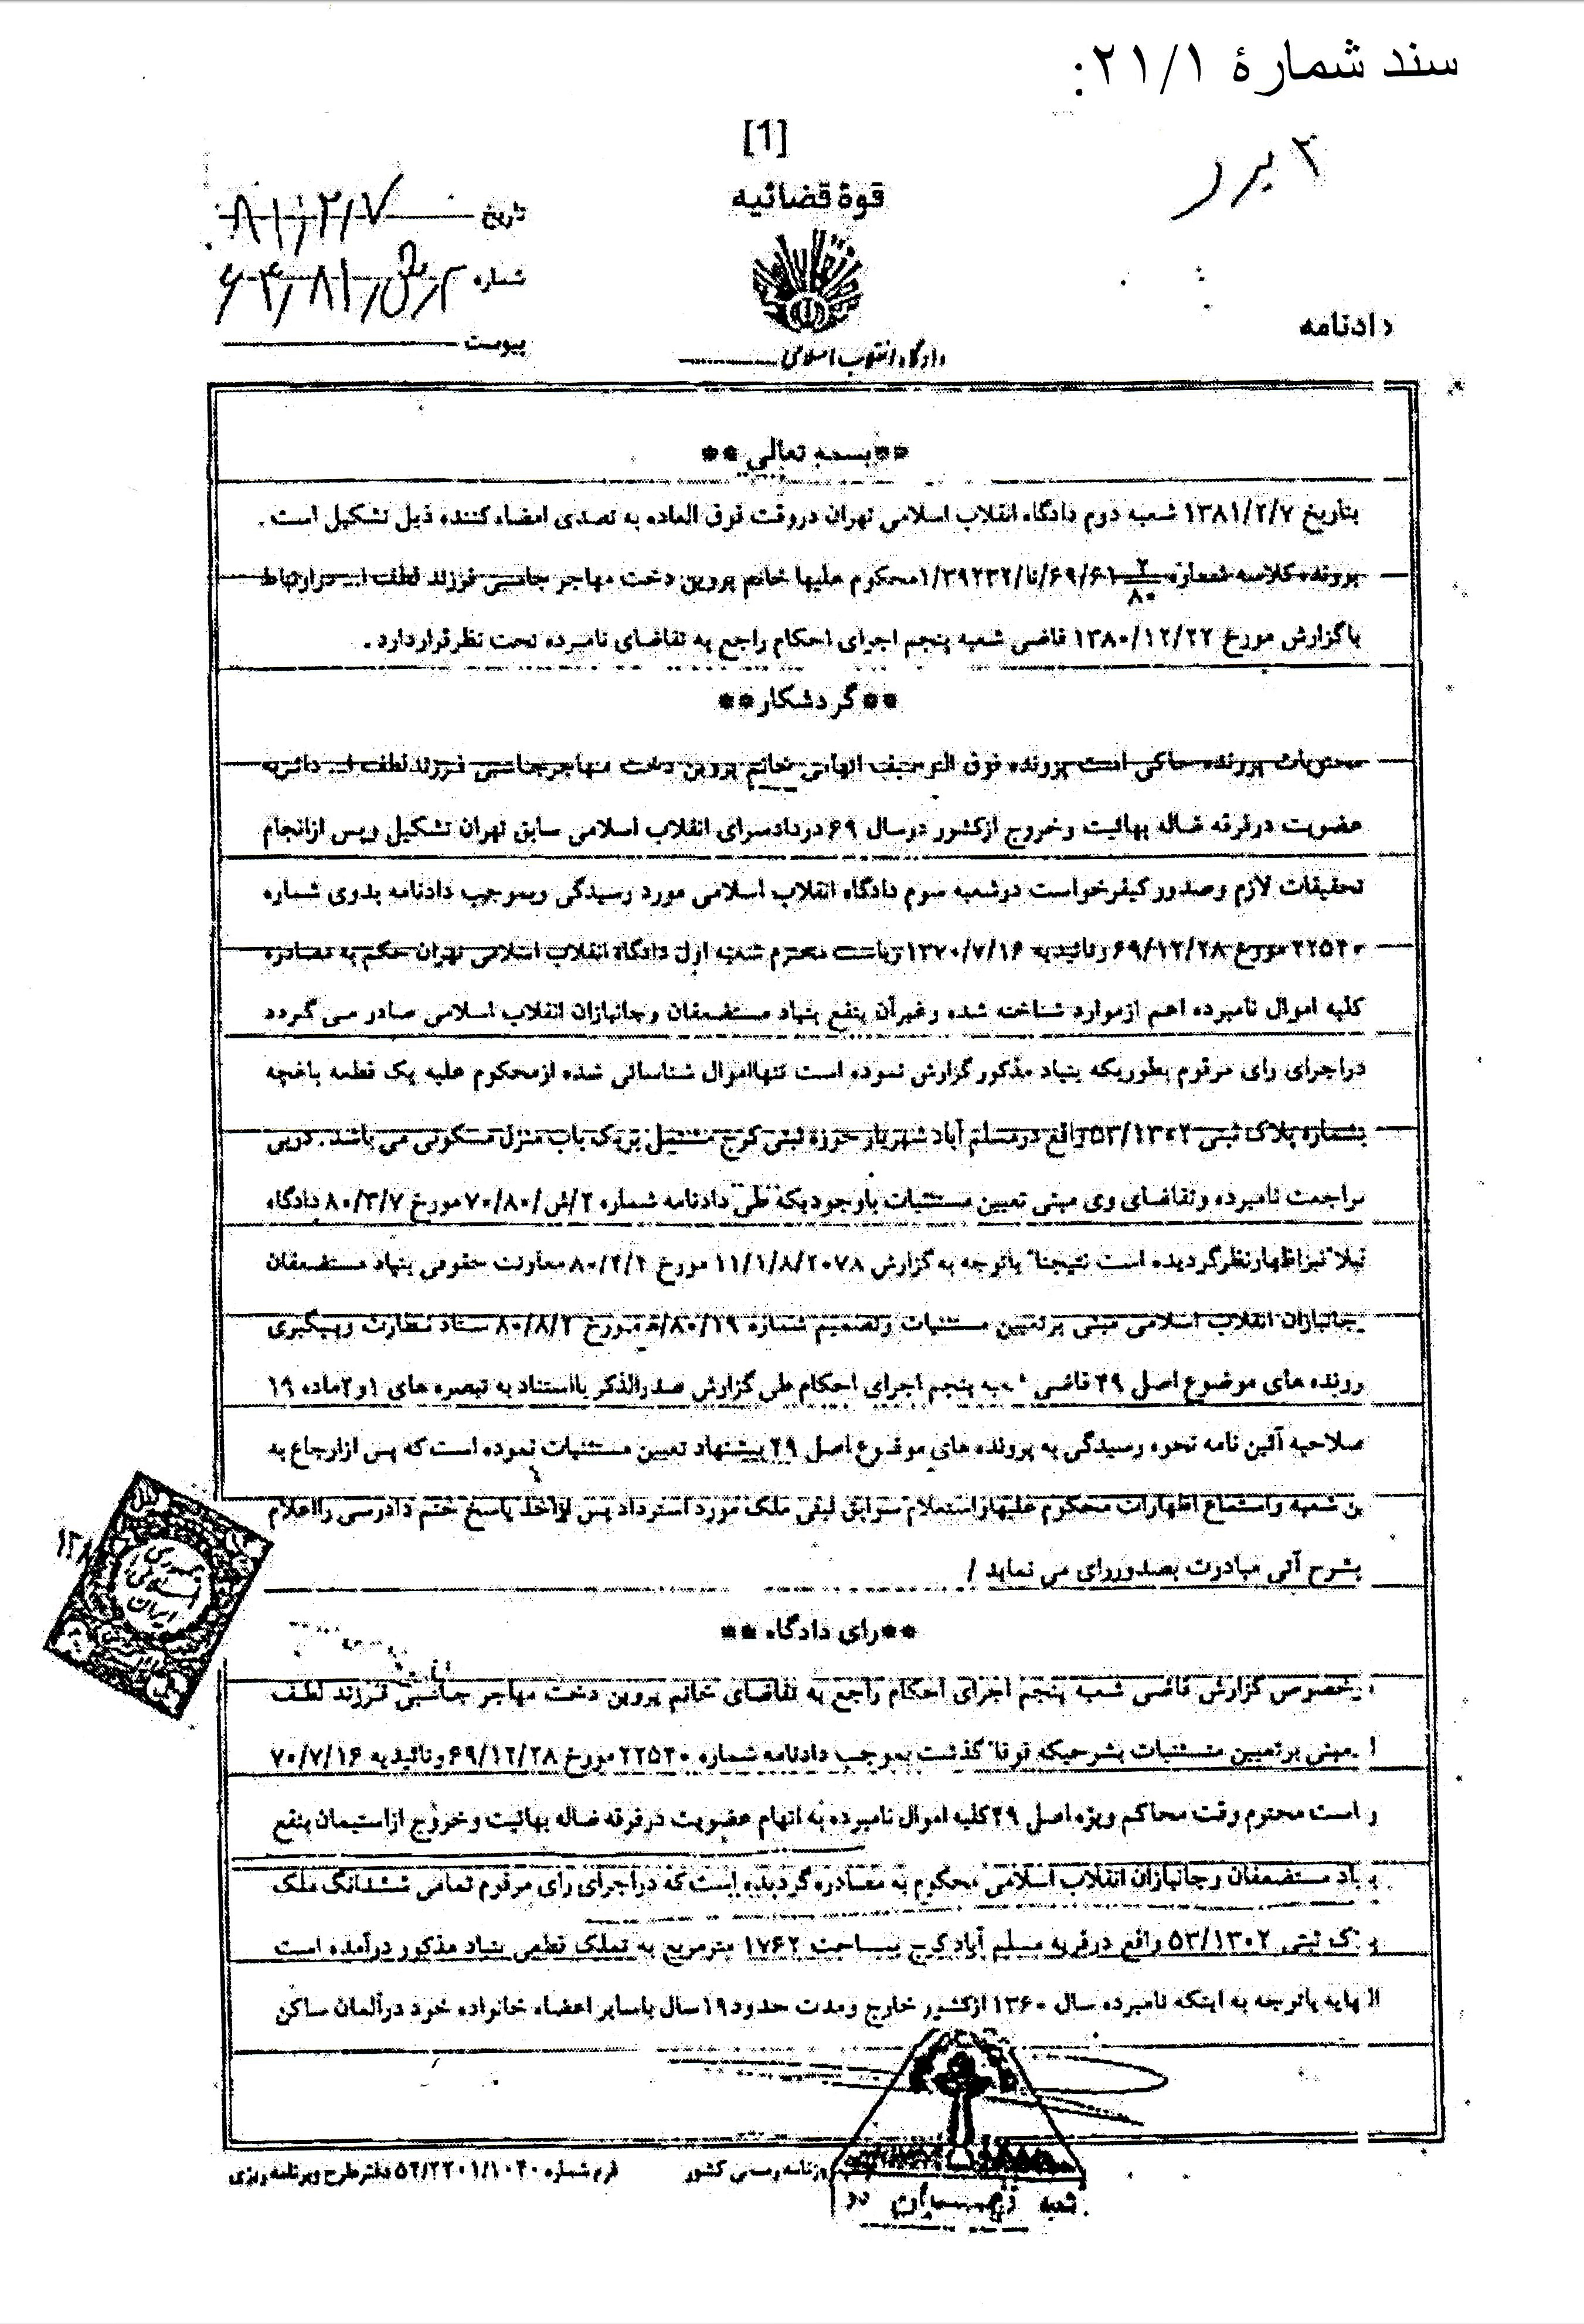 سند شمارهٔ ۲۱/۱:
[1]
قوهٔ قضائیه
تاریخ ۸۱/۲/۷
شماره ۲/ش/۸۱/۶۴
پیوست
دادنامه
دادگاه انقلاب اسلامی
**بسمه تعالی**
بتاریخ ۱۳۸۱/۲/۷ شعبه دوم دادگاه انقلاب اسلامی تهران دروقت فوق العاده به تصدی امضاء کننده ذیل تشکیل است .
پرونده کلاسه شماره ۲/۸۰ ۶۹/۶۱/نا/۱/۳۹۲۳۲محکوم علیها خانم پروین دخت مهاجر جاسبی فرزند لطف ا... درارتباط
باگزارش مورخ ۱۳۸۰/۱۲/۲۲ قاضی شعبه پنجم اجرای احکام راجع به تقاضای نامبرده تحت نظرقراردارد .
**گردشکار**
محتویات پرونده حاکی است پرونده فوق التوصیف اتهامی خانم پروین دخت مهاجرجاسبی فرزندلطف ا... دائربه
عضویت درفرقه ضاله بهائیت وخروج ازکشور درسال ۶۹ دردادسرای انقلاب اسلامی سابق تهران تشکیل وپس ازانجام
تحقیقات لازم وصدورکیفرخواست درشعبه سوم دادگاه انقلاب اسلامی مورد رسیدگی وبموجب دادنامه بدوی شماره
۲۲۵۲۰مورخ ۶۹/۱۲/۲۸ وتائیدیه ۱۳۷۰/۷/۱۶ ریاست محترم شعبه اول دادگاه انقلاب اسلامی تهران حکم به مصادره
کلیه اموال نامبرده اعم ازموارد شناخته شده وغیرآن بنفع بنیاد مستضعفان وجانبازان انقلاب اسلامی صادر می گردد
دراجرای رای مرقوم بطوریکه بنیاد مذکورگزارش نموده است تنهااموال شناسائی شده ازمحکوم علیه یک قطعه باغچه
بشماره پلاک ثبتی ۵۳/۱۳۰۲واقع درمسلم آباد شهریار حوزه ثبتی کرج مشتمل بریک باب منزل مسکونی می باشد . درپی
مراجعت نامبرده وتقاضای وی مبنی تعیین مستثنیات باوجودیکه طی دادنامه شماره ۲/ش/۷۰/۸۰مورخ ۸۰/۳/۷ دادگاه
قبلا"نیزاظهارنظرگردیده است نتیجتا" باتوجه به گزارش ۱۱/۱/۸/۲۰۷۸ مورخ ۸۰/۴/۲معاونت حقوقی بنیاد مستضعفان
جانبازان انقلاب اسلامی مبنی برتعیین مستثنیات وتصمیم شماره ۸۰/۱۹/ه مورخ ۸۰/۸/۲ ستاد نظارت وپیگیری
رونده های موضوع اصل ۴۹ قاضی شعبه پنجم اجرای احکام طی گزارش صدرالذکر بااستناد به تبصره های ۱و۲ماده ۱۹
صلاحیه آئین نامه نحوه رسیدگی به پرونده های موضوع اصل ۴۹ پیشنهاد تعیین مستثنیات نموده است که پس ازارجاع به
ین شعبه واستماع اظهارات محکوم علیهاواستعلام سوابق ثبتی ملک مورد استرداد پس ازاخذ پاسخ ختم دادرسی رااعلام
بشرح آتی مبادرت بصدوررای می نماید /
**رای دادگاه **
بخصوص گزارش قاضی شعبه پنجم اجرای احکام راجع به تقاضای خانم پروین دخت مهاجر جاسبی فرزند لطف
ا...مبنی برتعیین مستثنیات بشرحیکه فوقا" گذشت بموجب دادنامه شماره ۲۲۵۲۰ مورخ ۶۹/۱۲/۲۸ وتائیدیه ۷۰/۷/۱۶
است محترم وقت محاکم ویژه اصل ۴۹کلیه اموال نامبرده به اتهام عضویت درفرقه ضاله بهائیت وخروج ازاستیمان بنفع
یاد مستضعفان وجانبازان انقلاب اسلامی محکوم به مصادره گردیده است که دراجرای رای مرقوم تمامی ششدانگ ملک
ک ثبتی ۵۳/۱۳۰۲ واقع درقریه مسلم آباد کرج بمساحت ۱۷۶۲ مترمربع به تملک قطعی بنیاد مذکور درآمده است
النهایه باتوجه به اینکه نامبرده سال ۱۳۶۰ ازکشور خارج ومدت حدود۱۹سال باسایر اعضاء خانواده خود درآلمان ساکن
جمهوری اسلامی ایران
روزنامه رسمی کشور
فرم شماره ۵۲/۲۲۰۱/۱۰۴۰ دفترطرح وبرنامه ریزی
شعبه